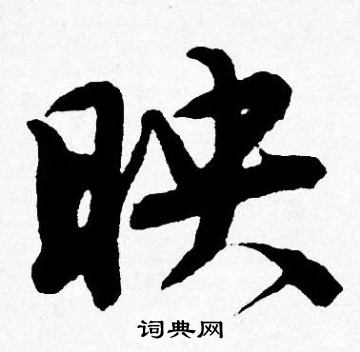 映
词典网